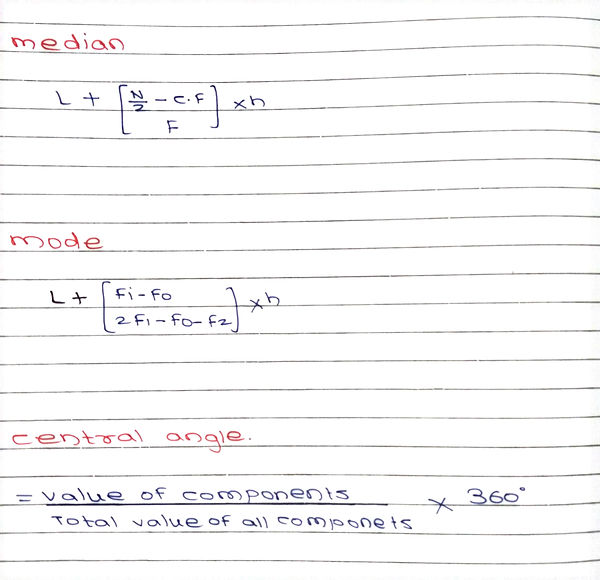 median
L + [N/2 - C.F / F] × h
mode
L + [Fi - Fo / 2F1 - Fo - F2] × h
central angle.
= value of components / Total value of all componets × 360°